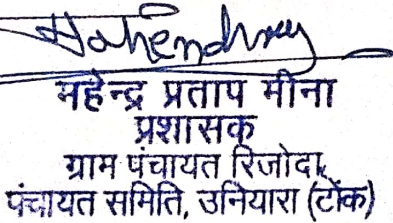 Mahendra
महेन्द्र प्रताप मीना
प्रशासक
ग्राम पंचायत रिजोदा
पंचायत समिति, उनियारा (टोंक)